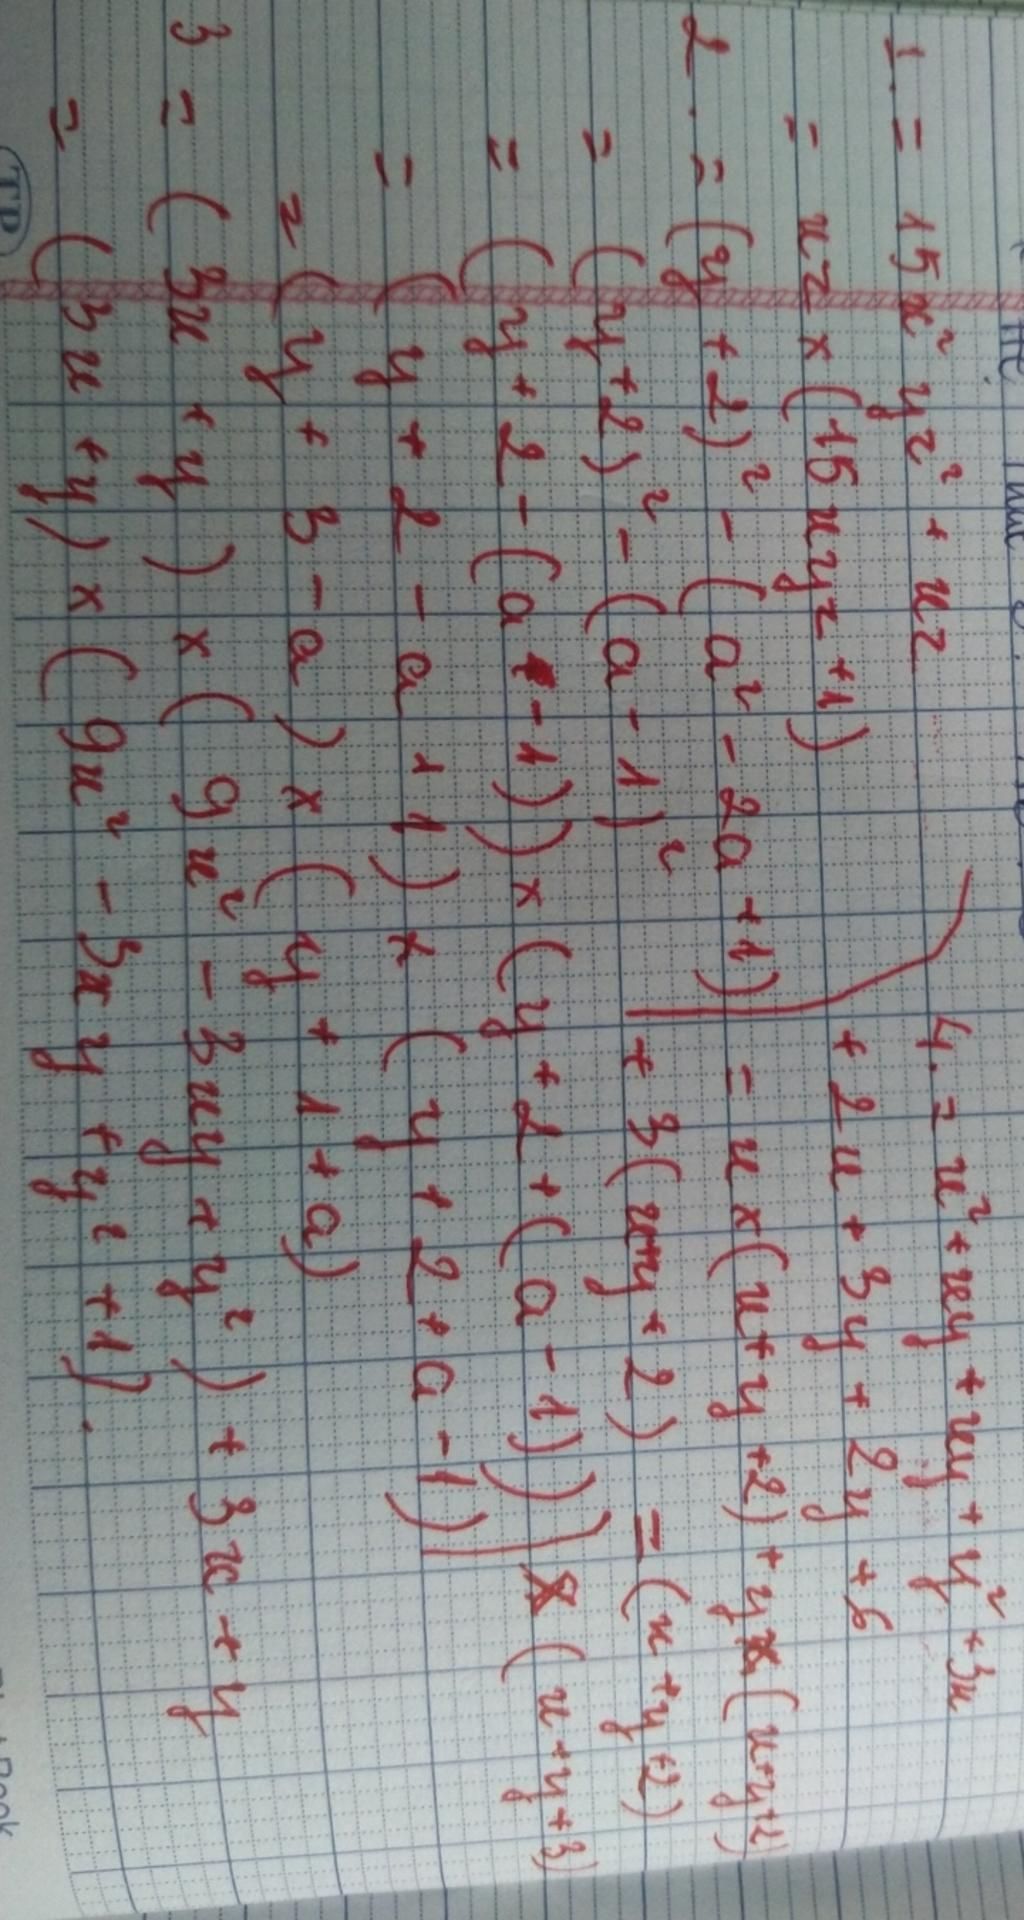 1. = 15x² yz² + xz
= xz × (15xyz +1)
2. = (y + 2)² - (a² - 2a +1)
= (y+2)² - (a - 1)²
= (y+2 - (a - 1)) × (y + 2 + (a - 1))
= (y + 2 - a + 1) × (y + 2 + a - 1)
= (y + 3 - a) × (y + 1 + a)
3 = (3x + y) × (9x² - 3xy + y²) + 3x + y
= (3x + y) × (9x² - 3xy + y² + 1).
4. = x² + xy + xy + y² + 3x
+ 2x + 3y + 2y + 6
= x × (x + y +2) + y × (x+y+2)
+ 3(x+y + 2) = (x + y +2)
× (x + y + 3)
TP